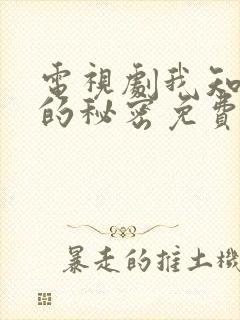 電視劇我知
的秘密免費
暴走的推土機